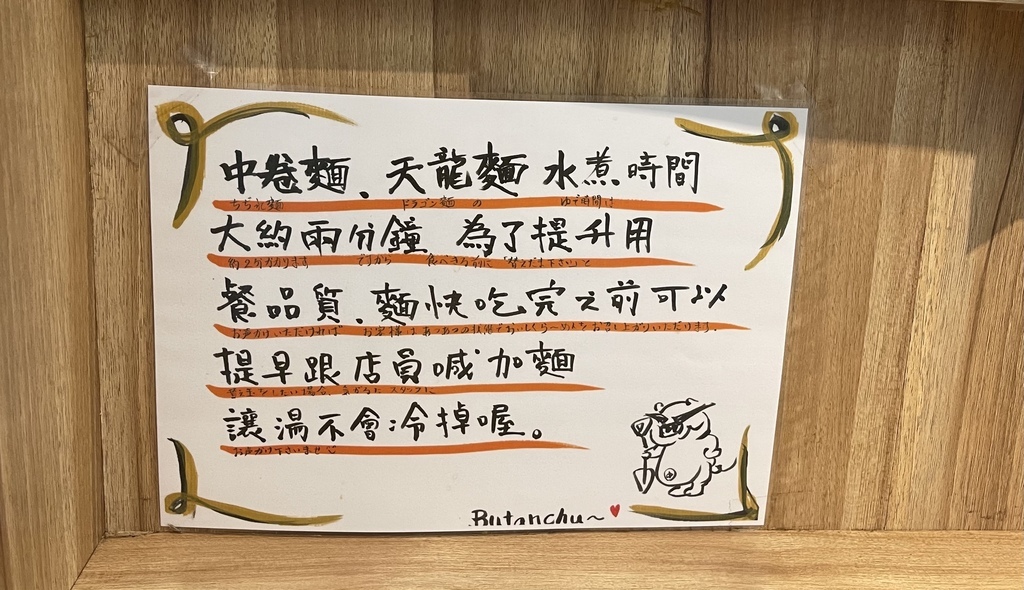 中卷麵、天龍麵 水煮時間
ちぢれ麺 ドラゴン麺 の ゆで時間は
大約兩分鐘 為了提升用
約2分かかります ですから 食べきる前に「替え玉下さい」と
餐品質、麵快吃完之前可以
お声がけいただければ お客様はあつあつの状態でおいしくらーめんをお召し上がりいただけます。
提早跟店員喊加麵
替え玉をしたい場合、スタッフに
讓湯不會冷掉喔。
お声がけ下さいませ
Butanchu~